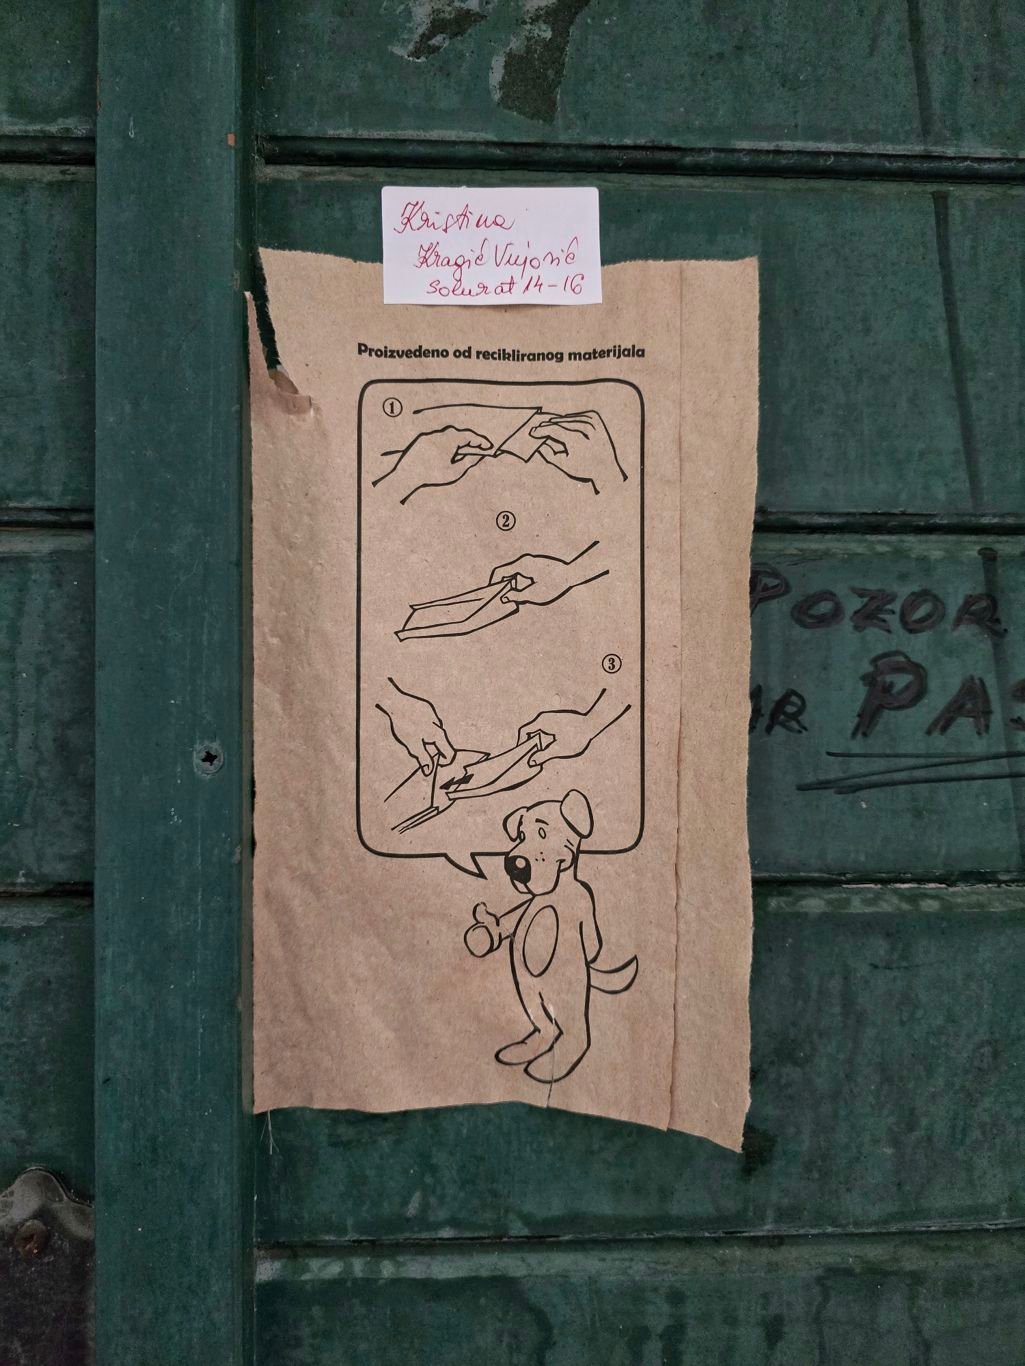 Kristina
Kragić Vujović
solurat 14-16
Proizvedeno od recikliranog materijala
1
2
3
POZOR
PAS